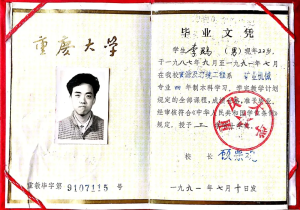 重庆大学
重教毕字第 9107115 号
毕业文凭
学生 李 (男) 现年22岁
于一九八七年九月至一九九一年七月
在我校资源及环境工程系 矿业机械
专业 四 年制本科学习,学完教学计划
规定的全部课程,成绩合格,准予毕业。
经审核符合《中华人民共和国学位条例》
规定,授予 工 学士学位。
校 长
一九九一年七月十日发